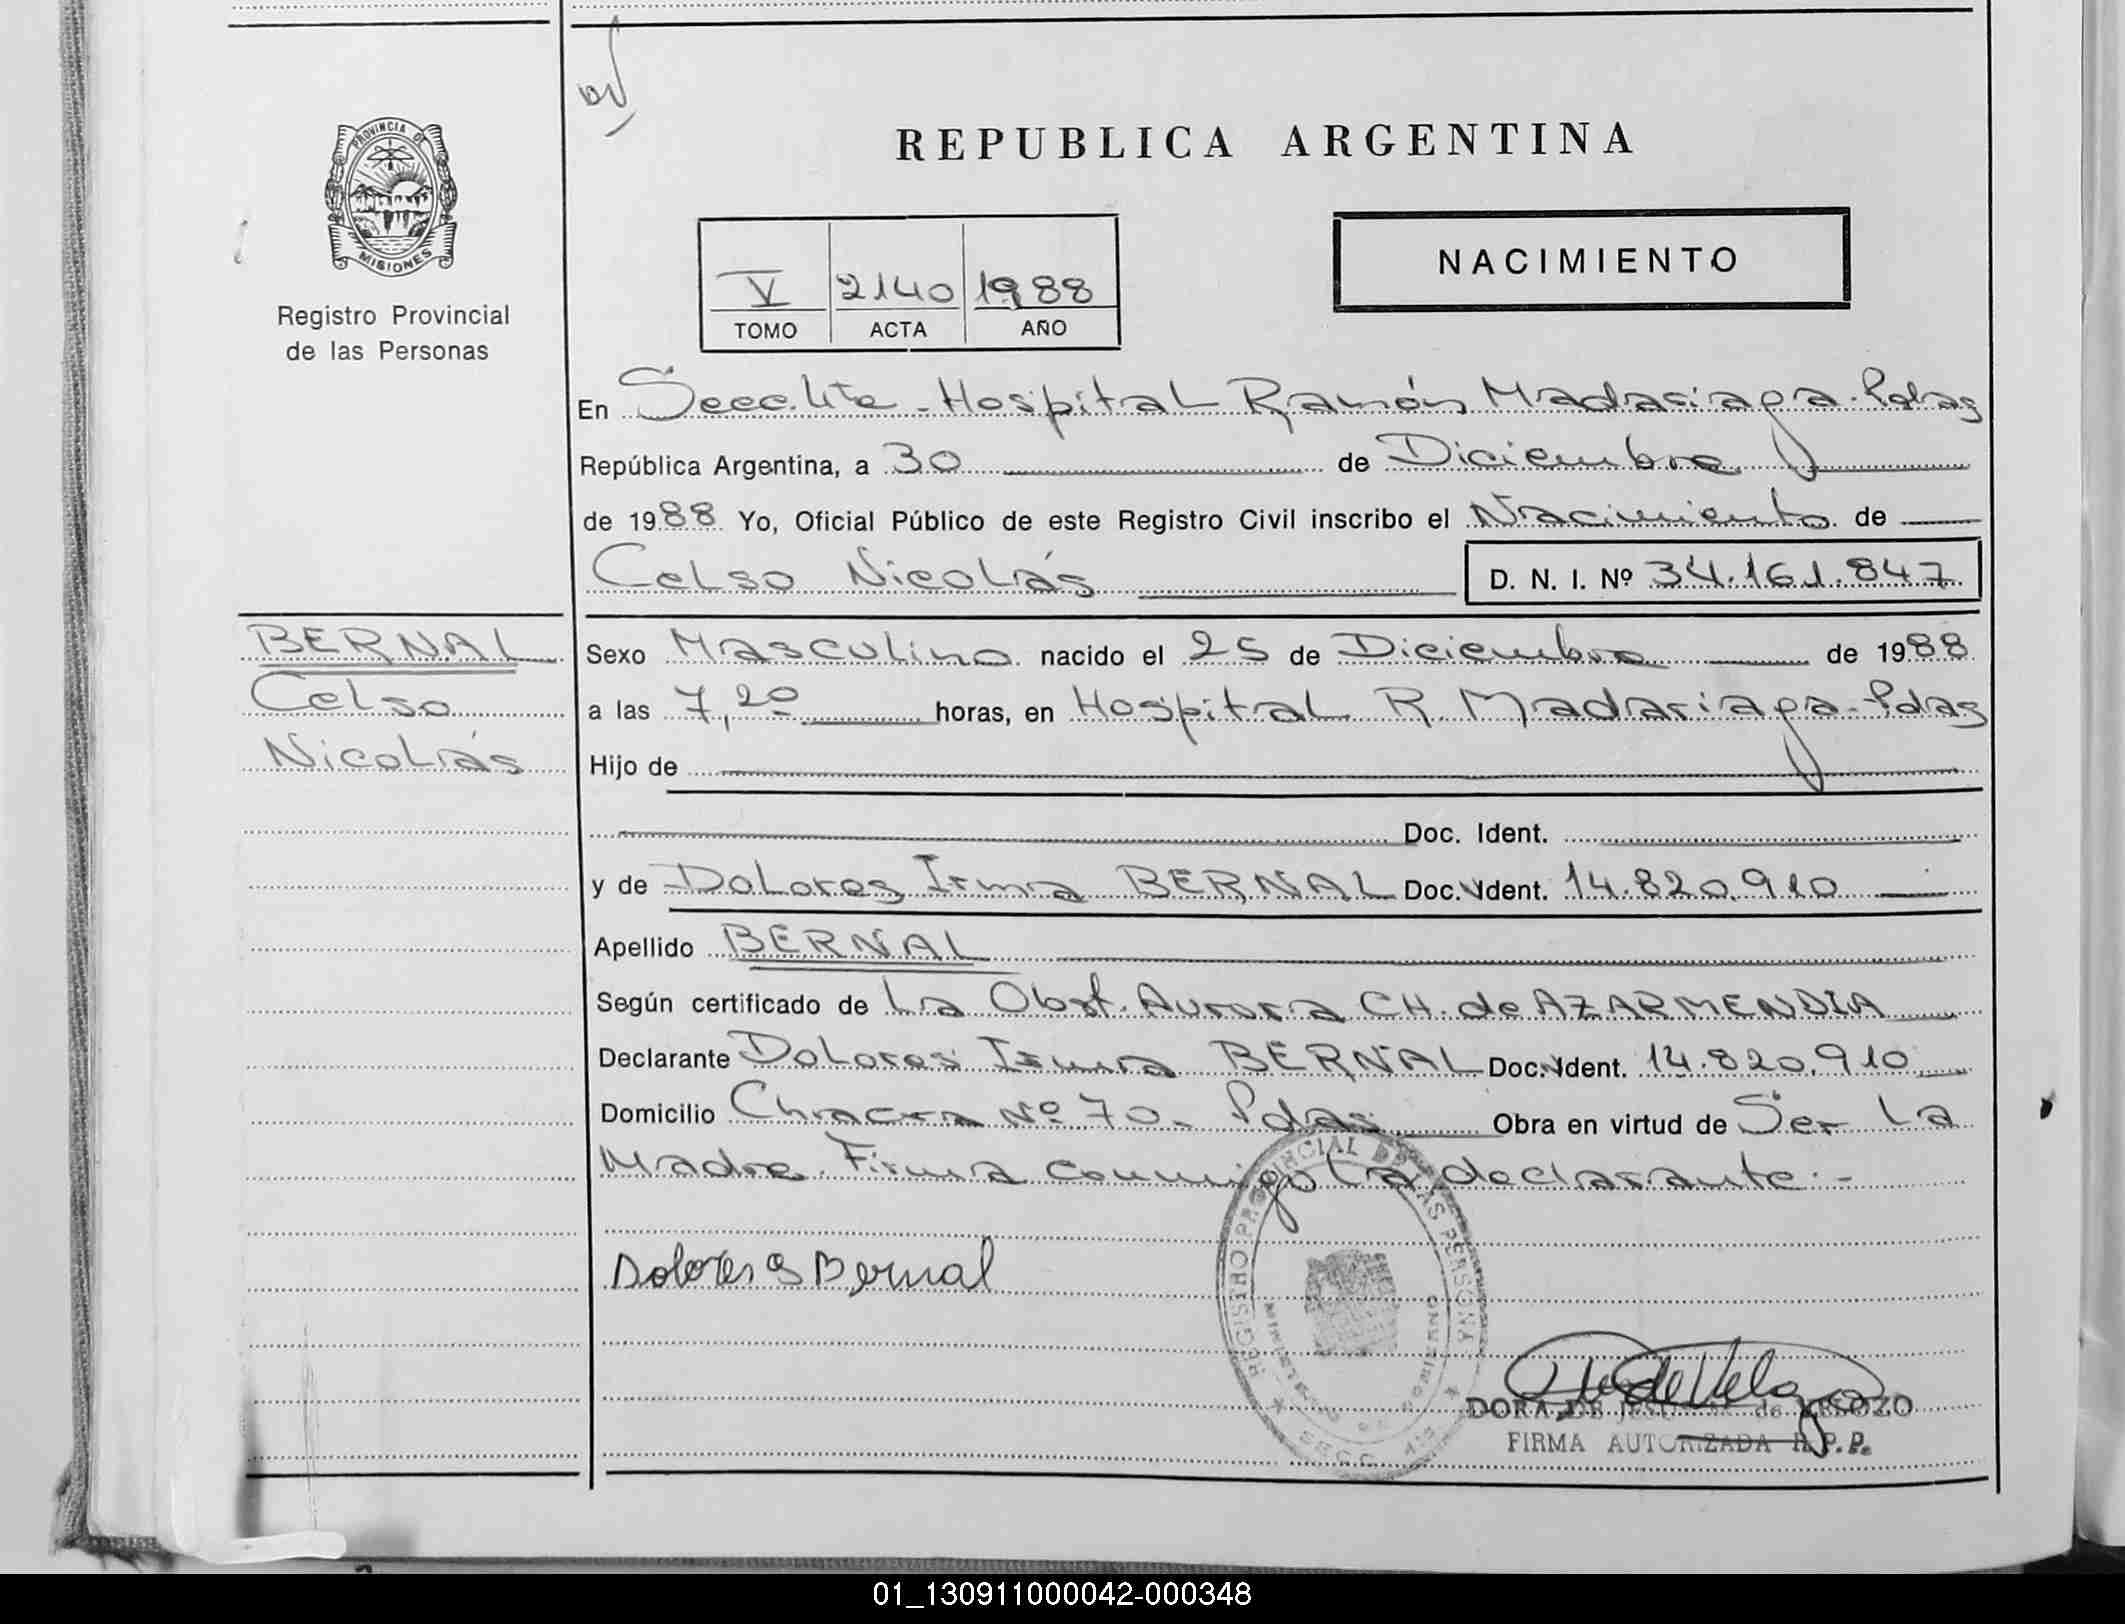 PROVINCIA DE
MISIONES
Registro Provincial
de las Personas
REPUBLICA ARGENTINA
NACIMIENTO
V 2140 1988
TOMO ACTA AÑO
En Secc. 4ta - Hospital Ramón Madariaga - Pdas
República Argentina, a 30 de Diciembre
de 1988 Yo, Oficial Público de este Registro Civil inscribo el Nacimiento de
Celso Nicolás D. N. I. Nº 34.161.847
BERNAL
Celso
Nicolás
Sexo Masculino nacido el 25 de Diciembre de 1988
a las 7,20 horas, en Hospital R. Madariaga - Pdas
Hijo de
Doc. Ident.
y de Dolores Irma BERNAL Doc. Ident. 14.820.910
Apellido BERNAL
Según certificado de La Obst. Aurora CH. de AZARMENDIA
Declarante Dolores Irma BERNAL Doc. Ident. 14.820.910
Domicilio Chacra Nº 70 - Pdas Obra en virtud de Ser La
Madre. Firma conmigo La declarante.-
REGISTRO PROVINCIAL DE LAS PERSONAS
MINISTERIO DE GOBIERNO
SECC. 4ta
Dolores Bernal
DORA DE de VELOZO
FIRMA AUTORIZADA R.P.P.
01_130911000042-000348